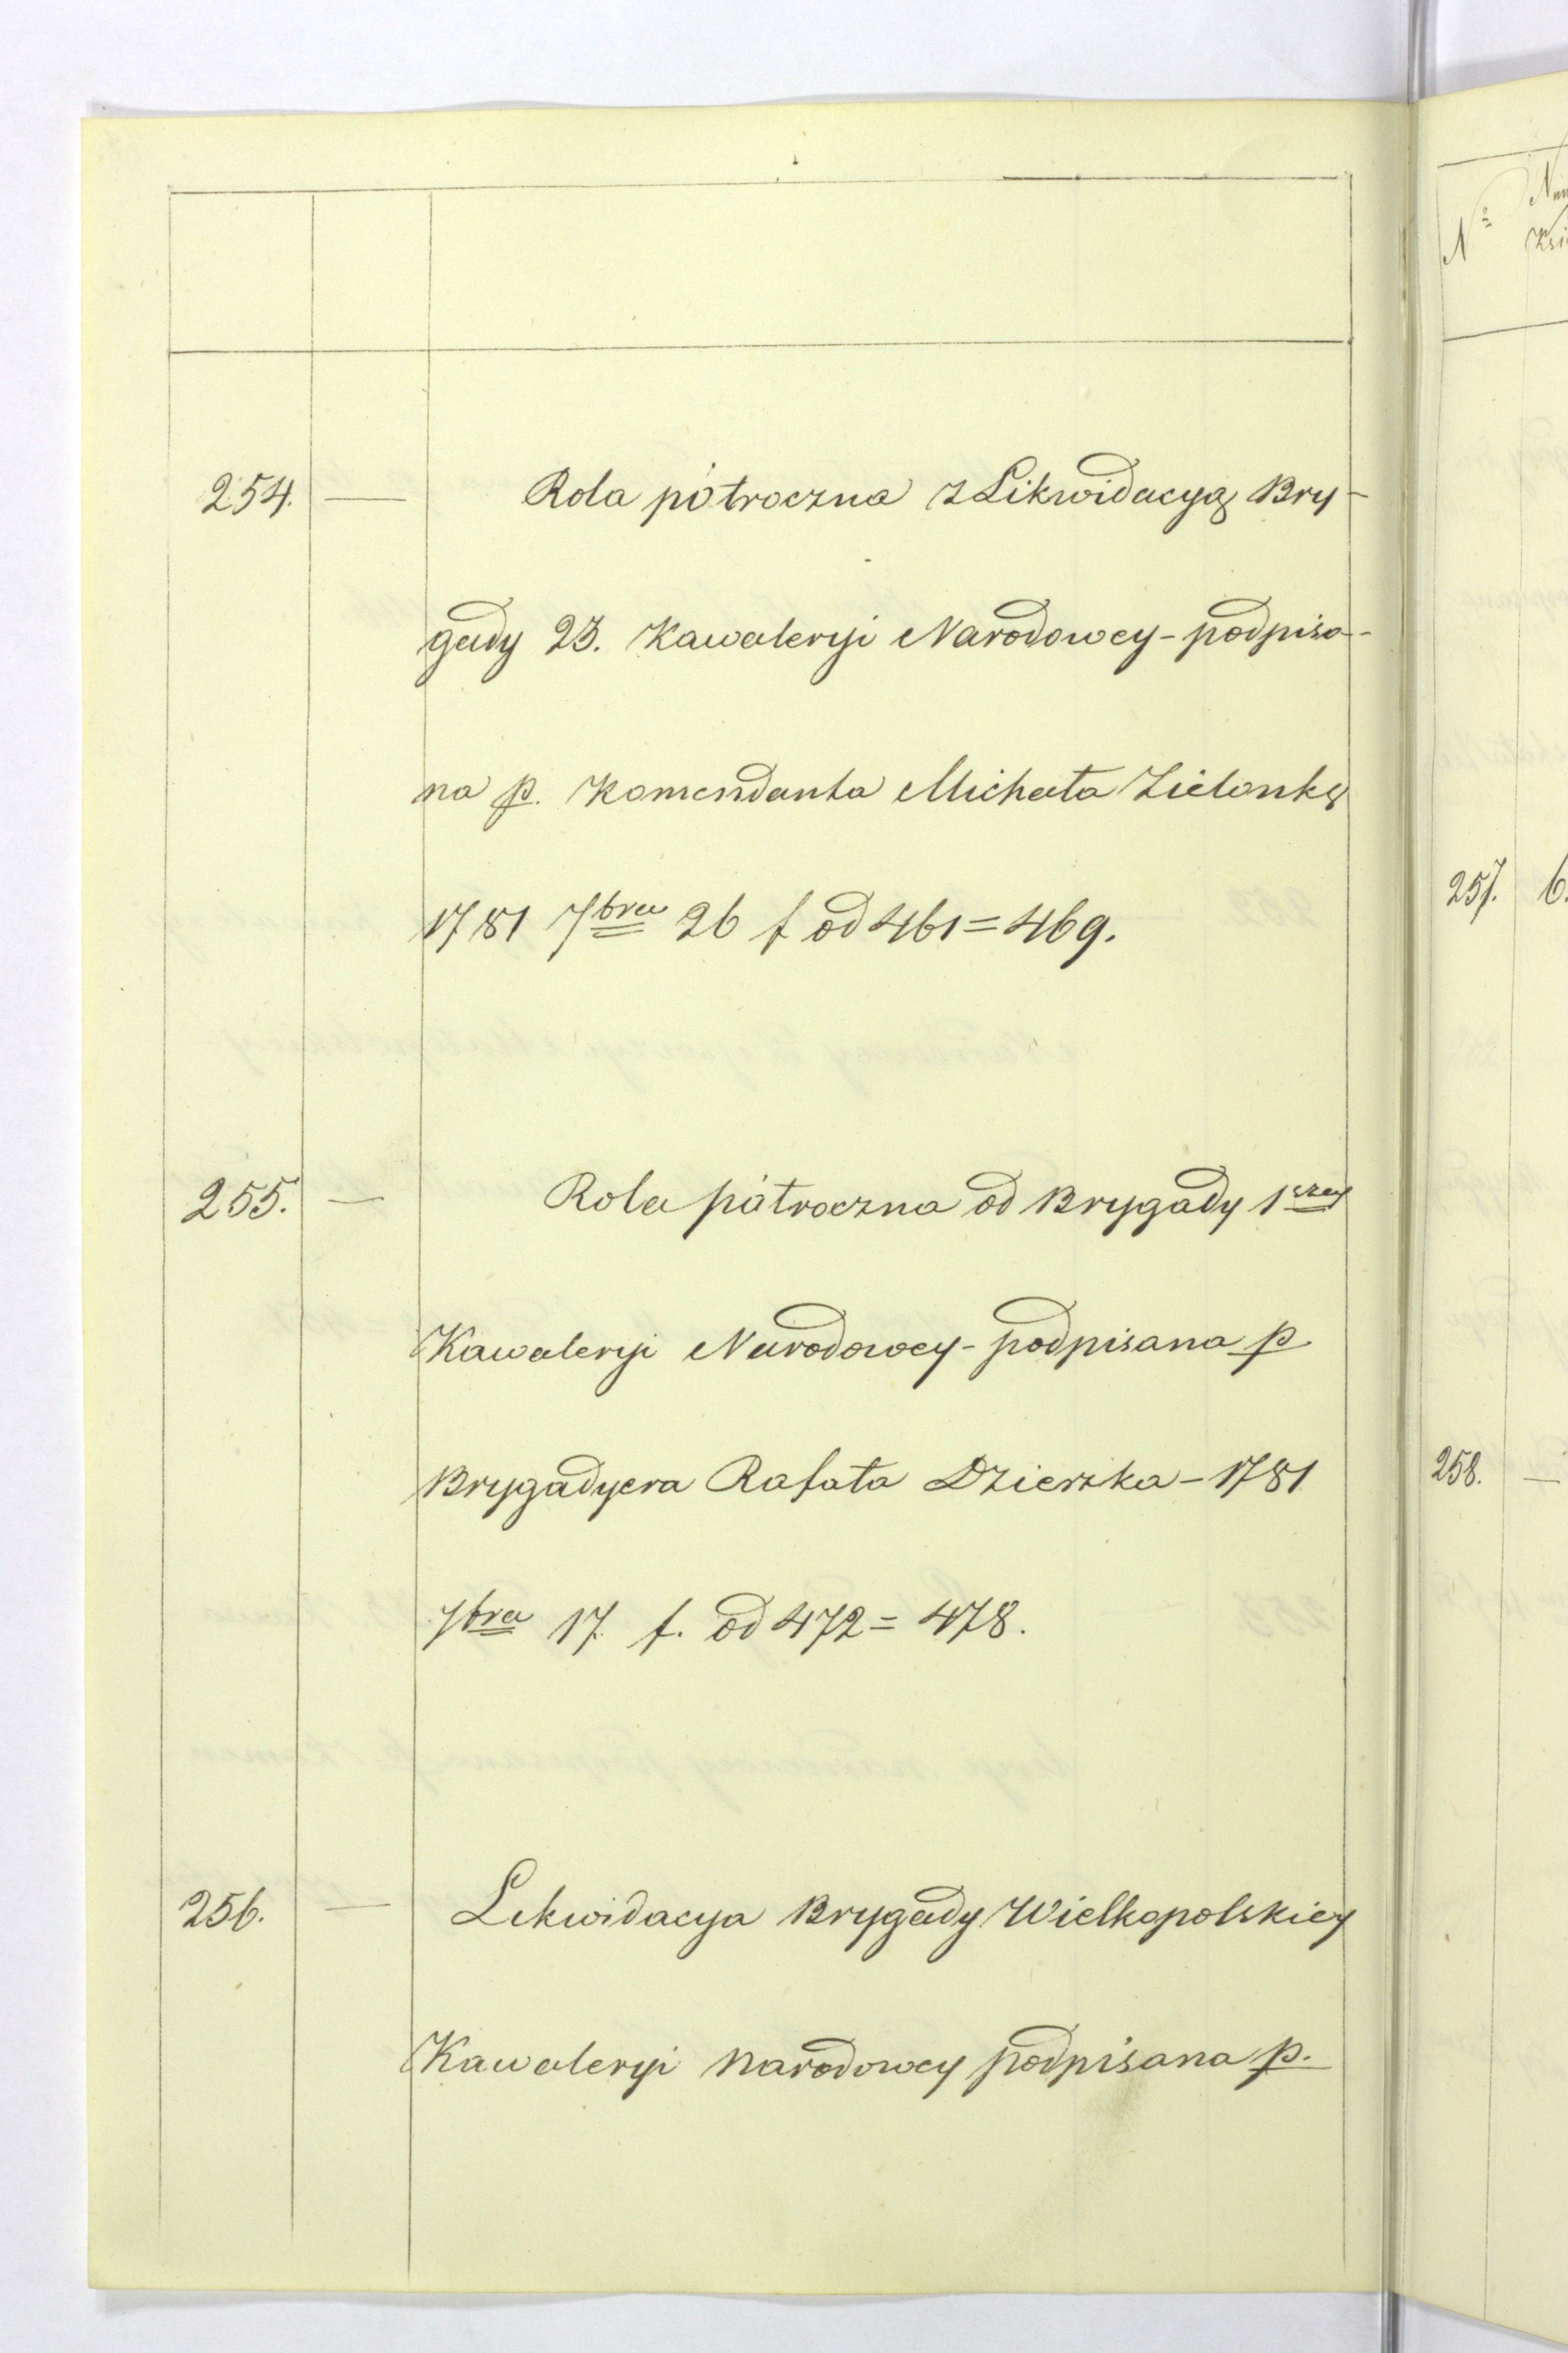 254. — Rola półroczna z Likwidacyą Bry-
gady 23. Kawaleryi Narodowey - podpisa-
na p. Komendanta Michała Zielonkę
1781 7bra 26 f od 461 = 469.
255. — Rola półroczna od Brygady 1szey
Kawaleryi Narodowey - podpisana p.
Brygadyera Rafała Dzierzka - 1781
7bra 17. f. od 472 = 478.
256. — Likwidacya Brygady Wielkopolskiey
Kawaleryi narodowey podpisana p.
No
257. 6.
258. —